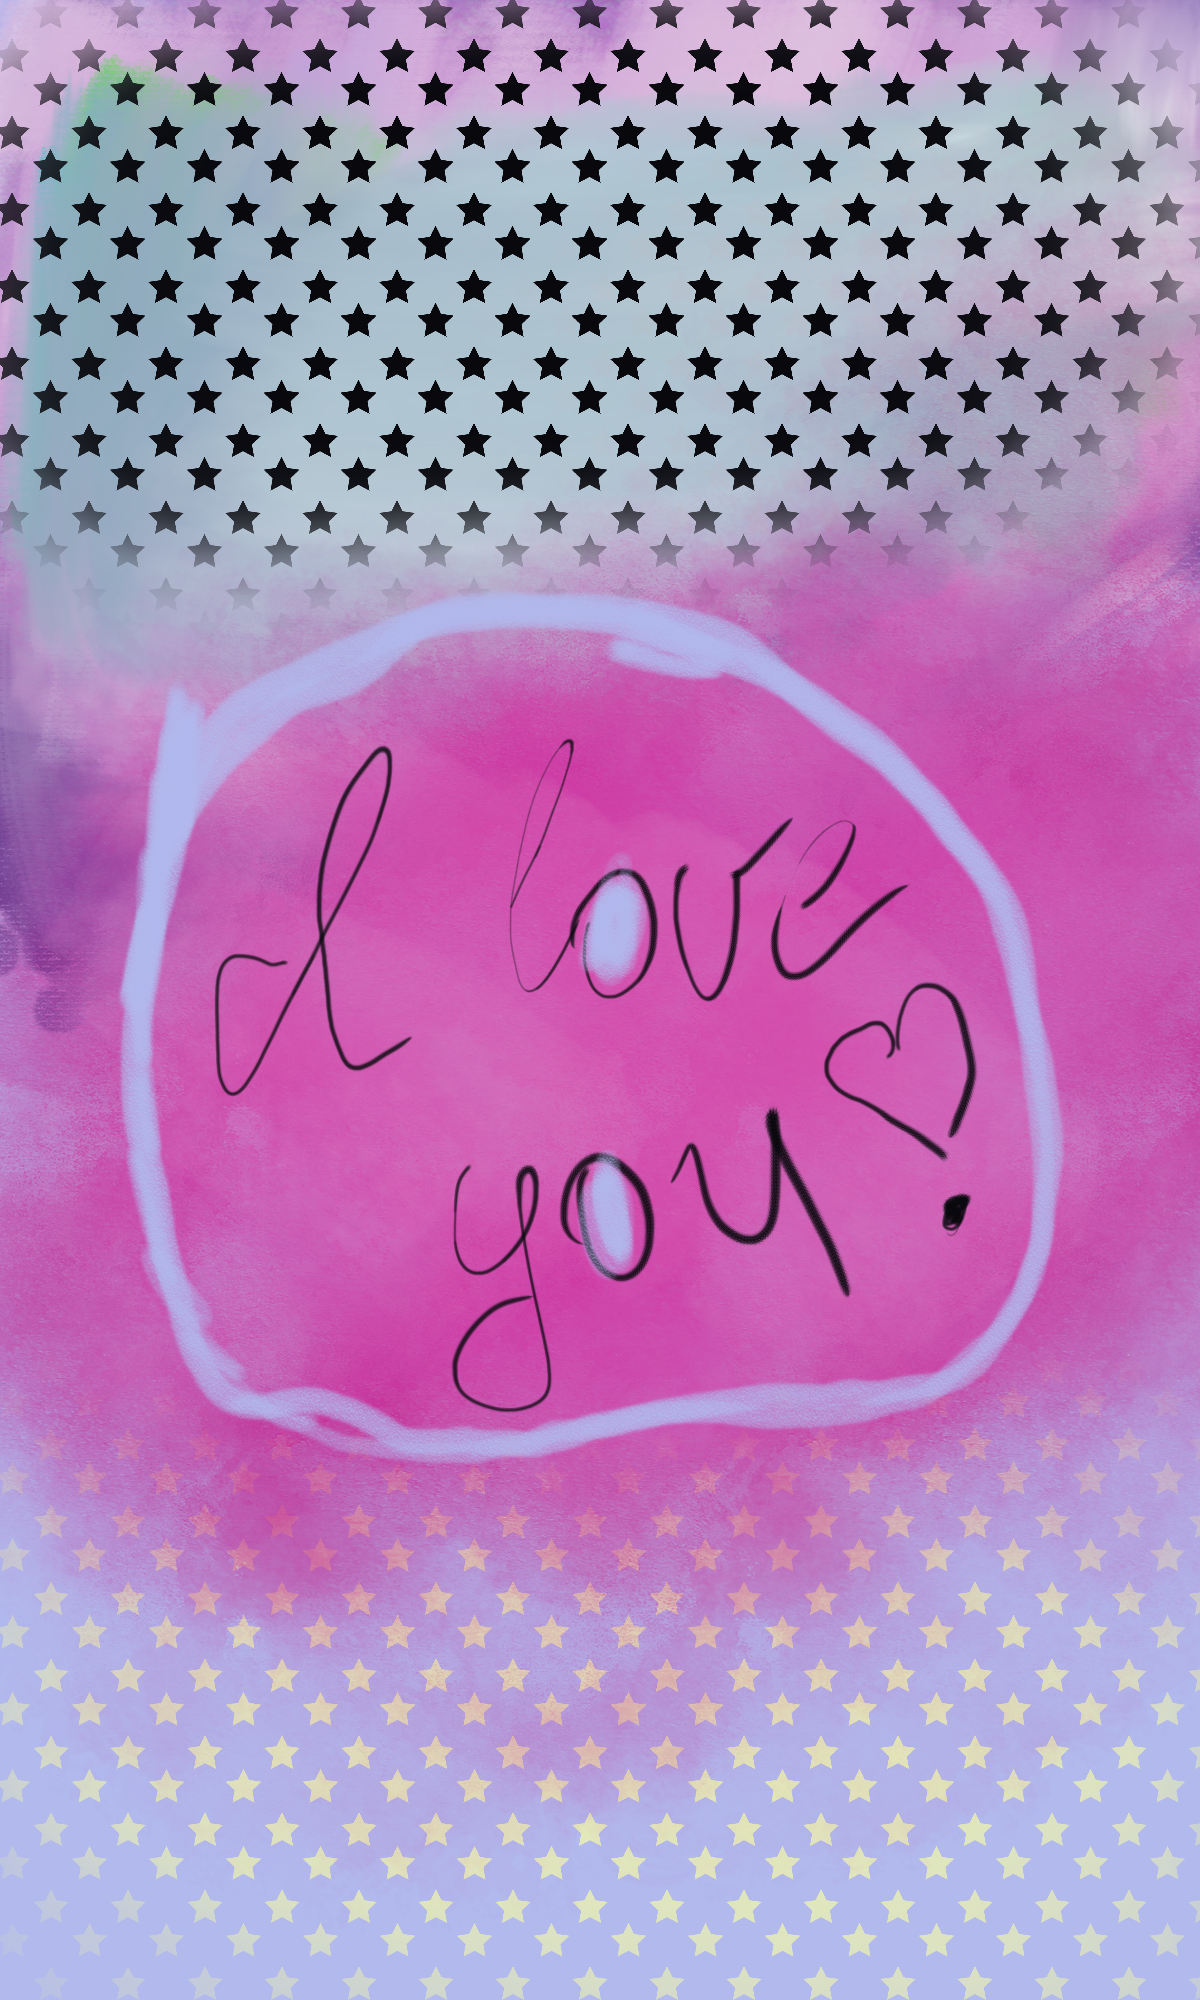 I love
you ♡.